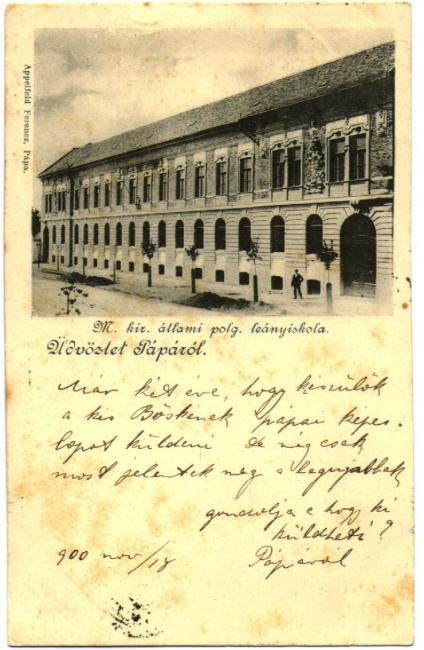 Appelfeld Ferencz, Pápa.
M. kir. állami polg. leányiskola.
Üdvözlet Pápáról.
Már két éve, hogy készülök
a kis Böskének pápai képes-
lapot küldeni de még csak
most jelentek meg a legujabbak
gondolja e hogy ki
küldheti?
900 nov/18 Pápáról